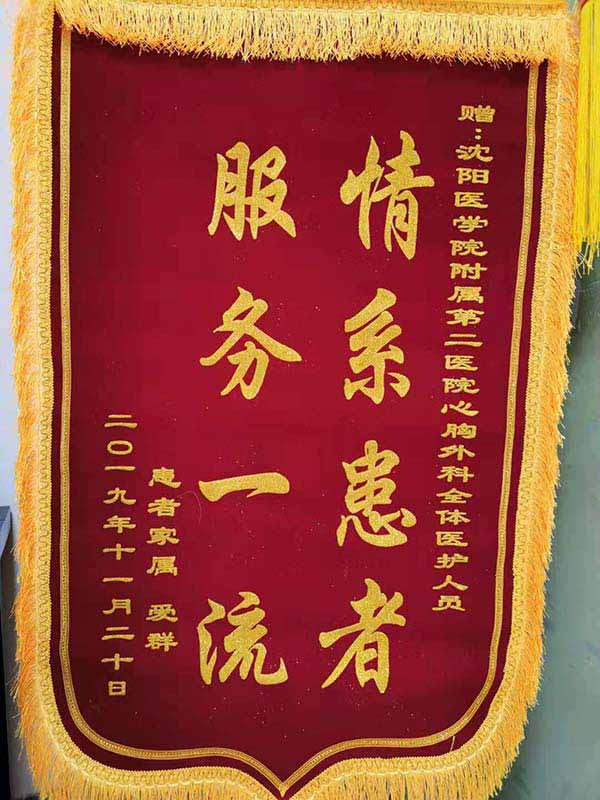 赠：沈阳医学院附属第二医院心胸外科全体医护人员
情系患者
服务一流
患者家属 爱群
二〇一九年十一月二十日